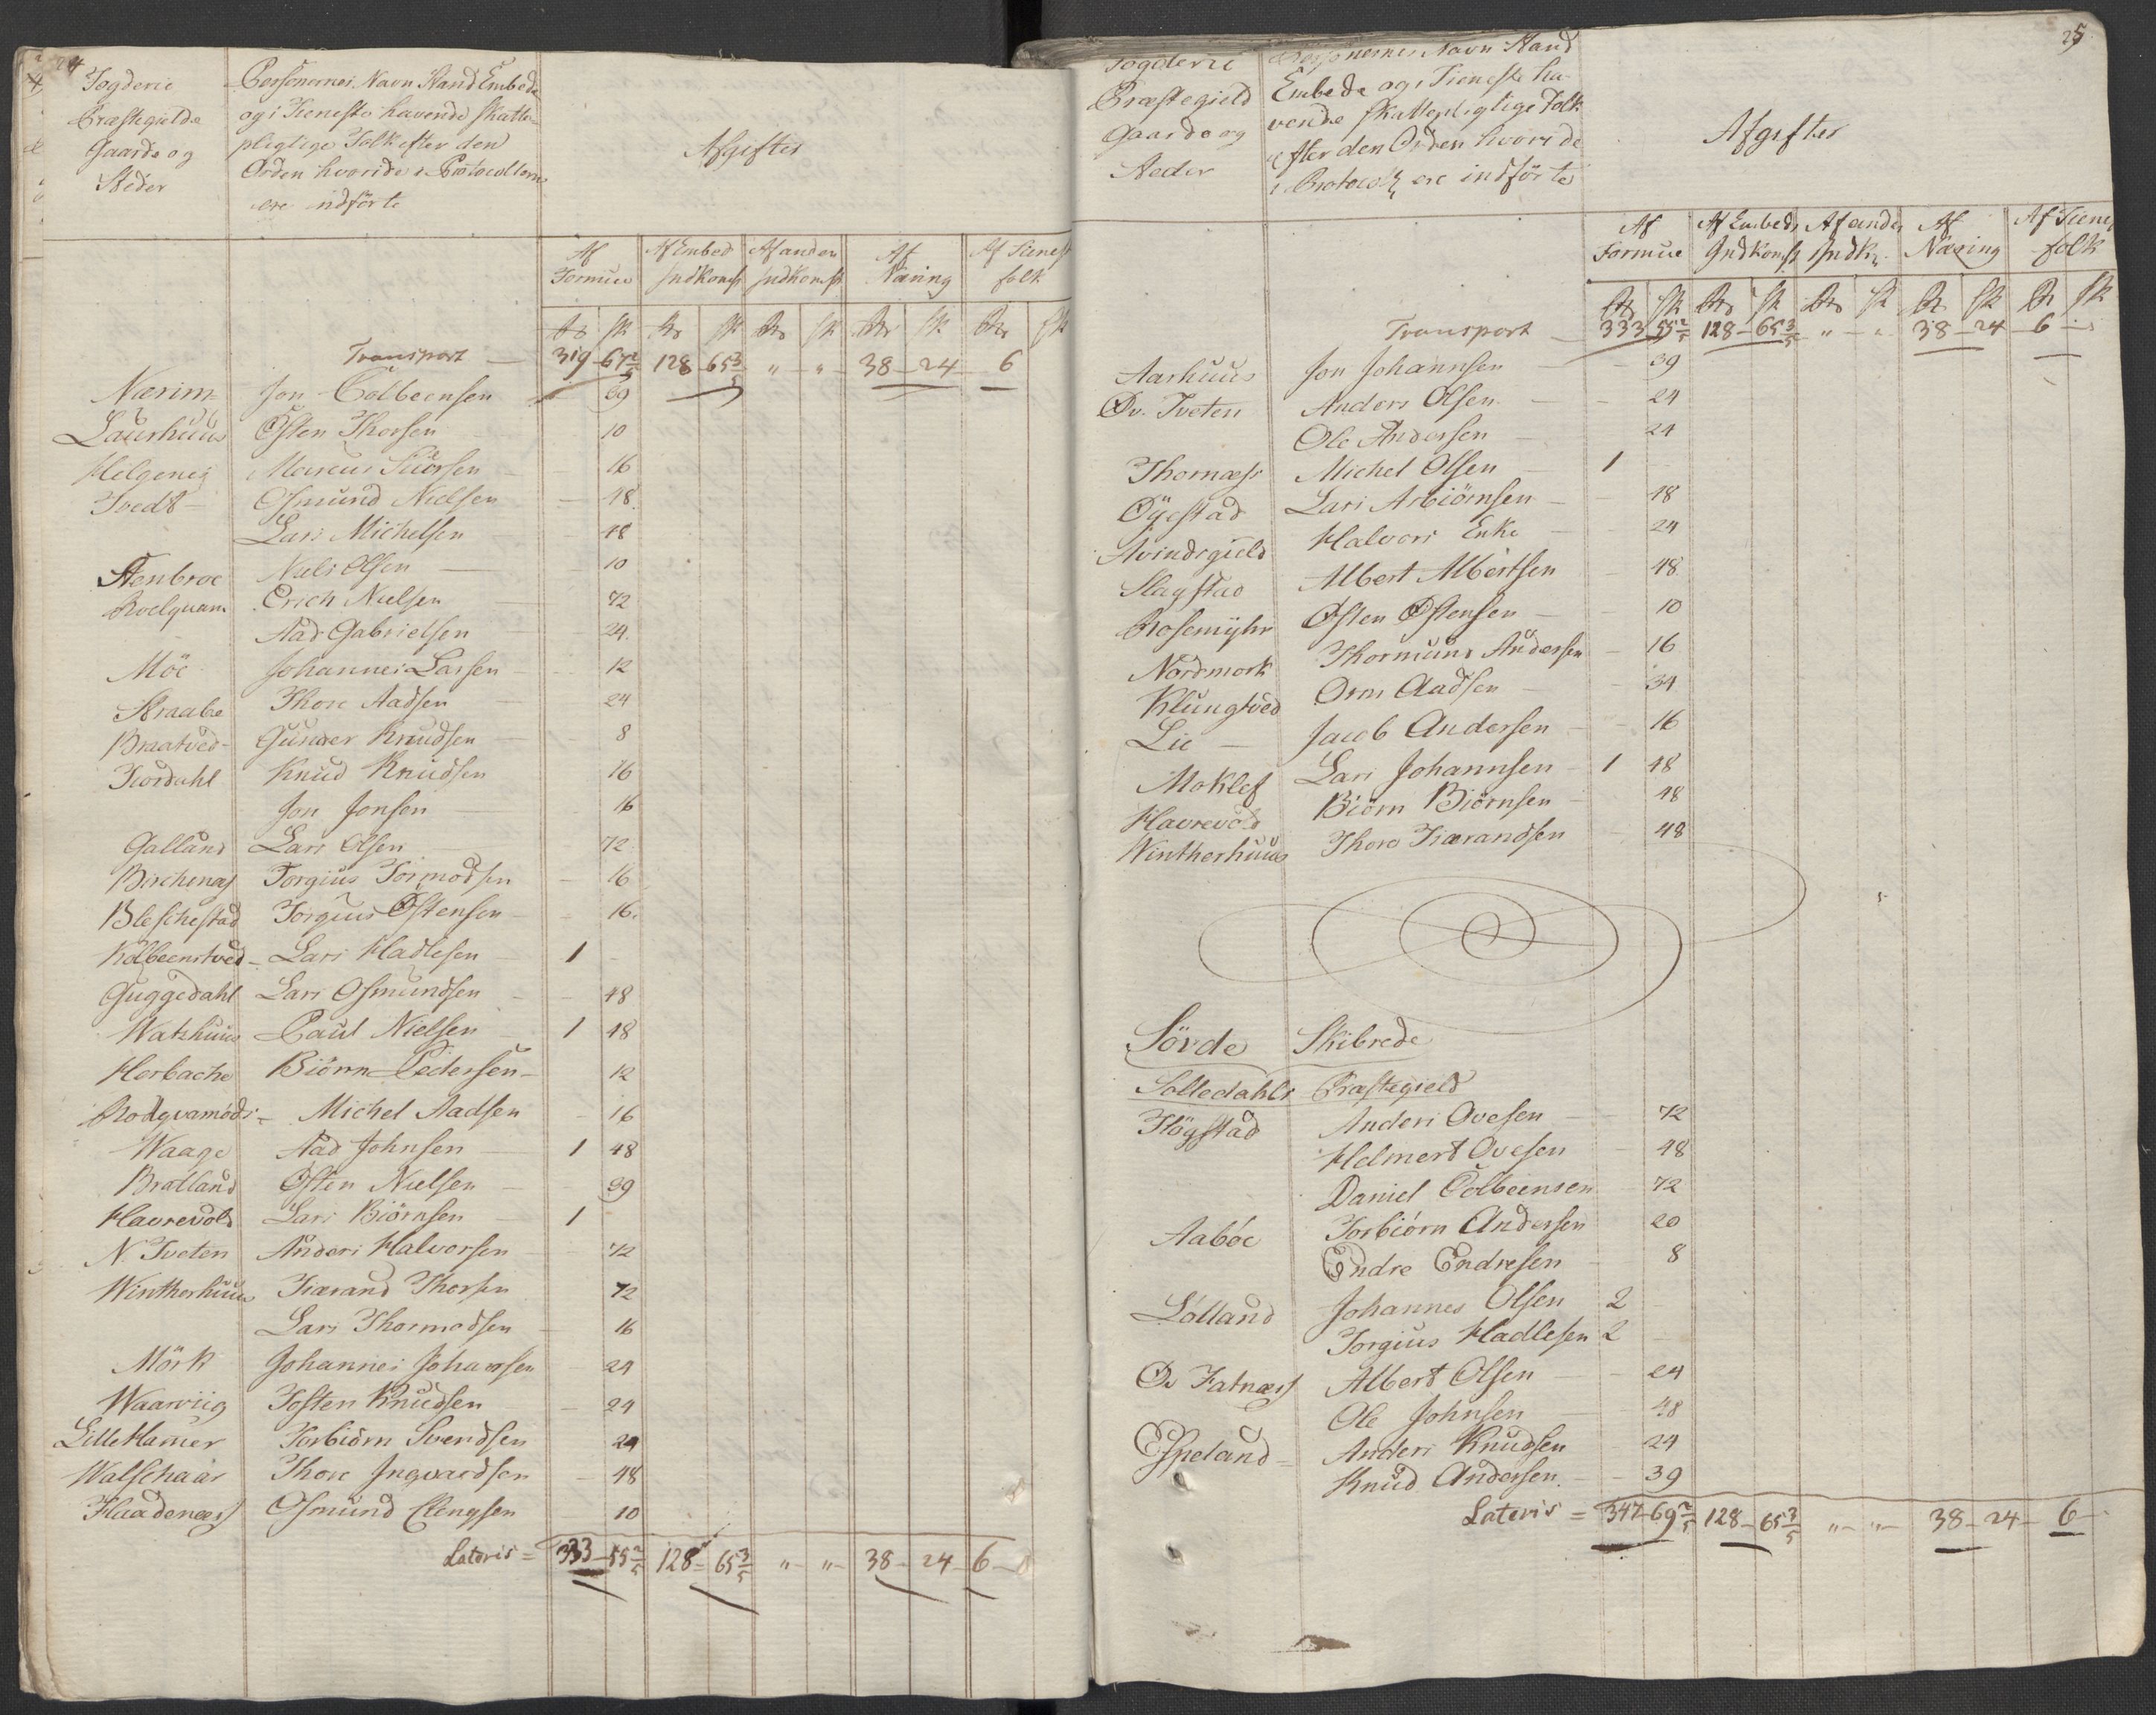 24
Fogderie
Præstegielde
Gaarde og
Stæder
Personernes Navn Stand Embede
og i Tieneste havende Skatte-
pligtige Folk efter den
Orden hvoride i Protocollerne
ere indførte
Afgifter
Af Formue Af Embed Indkomst Af anden Indkomst Af Næring Af Tienest folk
Rd Sk Rd Sk Rd Sk Rd Sk Rd Sk
Transport — 319 67 2/5 128 65 3/5 " " 38 24 6
Nærim Jon Colbeensen 39
Laurhuus Østen Thorsen 10
Helgenes Marcus Siursen 16
Tvedt Osmund Nielsen 48
Lars Michelsen 48
Stenbroe Niels Olsen 10
Roelquam Erich Nielsen 72
Aad Gabrielsen 24
Möe Johannes Larsen 12
Straabe Thore Aadsen 24
Braatved Gunder Knudsen 8
Fiordahl Knud Knudsen 16
Jon Jonsen 16
Galland Lars Olsen 72
Birchenes Torgius Tormodsen 16
Bleschestad Torgius Østensen 16
Kolbeenstved Lars Hadlesen 1
Guggedahl Lars Osmundsen 48
Watshuus Paul Nielsen 1 48
Herbache Biörn Pedersen 12
Rodqvamöds Michel Aadsen 16
Waage Aad Johnsen 1 48
Bratland Østen Nielsen 39
Havrevold Lars Biörnsen 1
N. Tveten Anders Halvorsen 72
Wintherhuus Tiærand Thorsen 72
Lars Thormodsen 16
Mörk Johannes Johannsen 24
Waarviig Tosten Knudsen 24
Lille Hamer Torbiörn Svendsen 24
Walschaar Thore Ingvardsen 48
Haadenæss Osmund Elengsen 10
Lateris = 333 55 2/5 128 65 3/5 " " 38 24 6
25
Fogderie
Præstegield
Gaarde og
Steder
Personernes Navn Stand
Embede og i Tieneste ha-
vende Skattepligtige Folk
efter den Orden hvori de
i Protocoll ere indførte
Afgifter
Af Formue Af Embeds Indkomst Af anden Indk. Af Næring Af Tienest folk
Rd Sk Rd Sk Rd Sk Rd Sk Rd Sk
Transport 333 55 2/5 128 65 3/5 " " 38 24 6
Aarhuus Jon Johannsen 39
Öv. Tveten Anders Olsen 24
Ole Andersen 24
Thomæss Michel Olsen 1
Öyestad Lars Asbiörnsen 48
Avindsgield Halvors Enke 24
Slagstad Albert Albertsen 48
Rosemyhr Østen Østensen 10
Nordmork Thormund Andersen 16
Klungtved Orm Aadsen 34
Lie Jacob Andersen 16
Moklef Lars Johannsen 1 48
Havrevold Biörn Biörnsen 48
Wintherhuus Thore Tiærandsen 48
Sörde Skibrede
Solledahls Præstegield
Högstad Anders Ovesen 72
Helmert Ovesen 48
Daniel Colbeensen 72
Aaböe Torbiörn Andersen 20
Endre Endresen 8
Lölland Johannes Olsen 2
Torgius Hadlesen 2
Öv Fatnæss Albert Olsen 24
Ole Johnsen 48
Espeland Anders Knudsen 24
Knud Andersen 39
Lateris = 347 69 2/5 128 65 3/5 " " 38 24 6